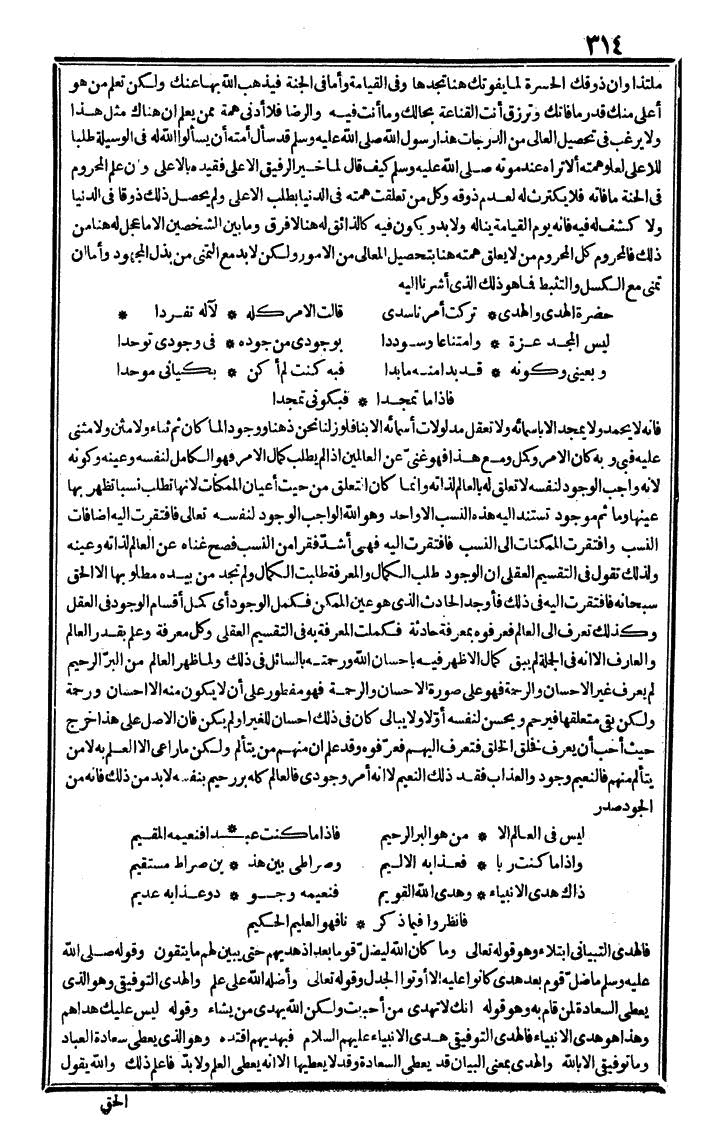 ٣١٤
ملتذا وان ذوقك الحسرة لما يفوتك هنا تجدها وفى القيامة وأما فى الجنة فيذهب الله بها عنك ولكن تعلم من هو
أعلى منك قدر ما فاتك وترزق أنت القناعة بحالك وما أنت فيه والرضا فلا أدنى همة ممن يعلم ان هناك مثل هذا
ولا يرغب فى تحصيل العالى من الدرجات هذا رسول الله صلى الله عليه وسلم قد سأل أمته أن يسألوا الله له فى الوسيلة طلبا
للاعلى لعلو همته ألا تراه عند موته صلى الله عليه وسلم كيف قال لما خير الرفيق الاعلى فقيده بالاعلى وان علم المحروم
فى الجنة ما فاته فلا يكترث له لعدم ذوقه وكل من تعلقت همته فى الدنيا بطلب الاعلى ولم يحصل ذلك ذوقا فى الدنيا
ولا كشف له فيه فانه يوم القيامة يناله ولا بد ويكون فيه كالذائق له هنا لا فرق وما بين الشخصين الا ما عجل له هنا من
ذلك فالمحروم كل المحروم من لا يعلق همته هنا بتحصيل المعالى من الامور ولكن لا بد مع التمنى من بذل المجهود وأما ان
تمنى مع الكسل والتثبط فما هو ذلك الذى أشرنا اليه
حضرة الهدى والهدى * تركت أمرنا سدى قالت الامر كله * لآله تفردا *
ليس المجد عزة * وامتناعا وسوددا بوجودى من جوده * فى وجودى توحدا
وبعينى وكونه * قد بدا منه ما بدا فبه كنت لم أكن * بكيانى موحدا
فاذا ما تمجدا * فبكونى تمجدا
فانه لا يحمد ولا يمجد الا باسمائه ولا تعقل مدلولات أسمائه الا بنا فلو زلنا نحن ذهنا ووجود الما كان ثم ثناء ولا مثن ولا مثنى
عليه فبى وبه كان الامر وكمل ومع هذا فهو غنى عن العالمين اذا لم يطلب كمال الامر فهو الكامل لنفسه وعينه وكونه
لانه واجب الوجود لنفسه لا تعلق له بالعالم لذاته وانما كان التعلق من حيث أعيان الممكنات لانها تطلب نسبا تظهر بها
عينها وما ثم موجود تستند اليه هذه النسب الا واحد وهو الله الواجب الوجود لنفسه تعالى فافتقرت اليه اضافات
النسب وافتقرت الممكنات الى النسب فافتقرت اليه فهى أشد فقرا من النسب فصح غناه عن العالم لذاته وعينه
ولذلك تقول فى التقسيم العقلى ان الوجود طلب الكمال والمعرفة طلبت الكمال ولم تجد من بيده مطلوبها الا الحق
سبحانه فافتقرت اليه فى ذلك فأوجد الحادث الذى هو عين الممكن فكمل الوجود أى كمل أقسام الوجود فى العقل
وكذلك تعرف الى العالم فعرفوه بمعرفة حادثة فكملت المعرفة به فى التقسيم العقلى وكل معرفة وعلم بقدر العالم
والعارف الا انه فى الجملة لم يبق كمال الا ظهر فيه باحسان الله ورحمته بالسائل فى ذلك ولما ظهر العالم من البر الرحيم
لم يعرف غير الاحسان والرحمة فهو على صورة الاحسان والرحمة فهو مفطور على أن لا يكون منه الا احسان ورحمة
ولكن بقى متعلقها فيرحم ويحسن لنفسه أولا ولا يبالى كان فى ذلك احسان للغير او لم يكن فان الاصل على هذا خرج
حيث أحب أن يعرف فخلق الخلق فتعرف اليهم فعرفوه وقد علم ان منهم من يتألم ولكن ما راعى الا العلم به لا من
يتألم منهم فالنعيم وجود والعذاب فقد ذلك النعيم لا انه أمر وجودى فالعالم كله بر رحيم بنفسه لا بد من ذلك فانه من
الجود صدر
ليس فى العالم الا * من هو البر الرحيم فاذا ما كنت عبدا * فنعيمه المقيم
واذا ما كنت ربا * فعذابه الاليم وصراطى بين هذ * ين صراط مستقيم
ذاك هدى الانبياء * وهدى الله القويم فنعيمه وجو * دو عذابه عديم
فانظروا فيما ذكر * نا فهو العليم الحكيم
فالهدى التبيانى ابتلاء وهو قوله تعالى وما كان الله ليضل قوما بعد اذ هديهم حتى يبين لهم ما يتقون وقوله صلى الله
عليه وسلم ما ضل قوم بعد هدى كانوا عليه الا أوتوا الجدل وقوله تعالى وأضله الله على علم والهدى التوفيقى وهو الذى
يعطى السعادة لمن قام به وهو قوله انك لا تهدى من أحببت ولكن الله يهدى من يشاء وقوله ليس عليك هداهم
وهذا هو هدى الانبياء فالهدى التوفيقى هدى الانبياء عليهم السلام فبهديهم اقتده وهو الذى يعطى سعادة العباد
وما توفيقى الا بالله والهدى بمعنى البيان قد يعطى السعادة وقد لا يعطيها الا انه يعطى العلم ولا بد فاعلم ذلك والله يقول
الحق